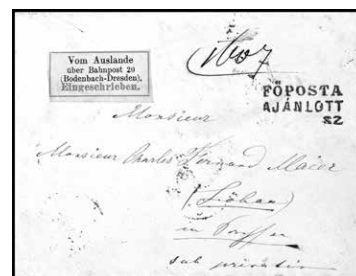 Vom Auslande
über Bahnpost 20
(Bodenbach-Dresden).
Eingeschrieben.
FŐPOSTA
AJÁNLOTT
SZ
Monsieur
Monsieur Charles Fernand Maier
in